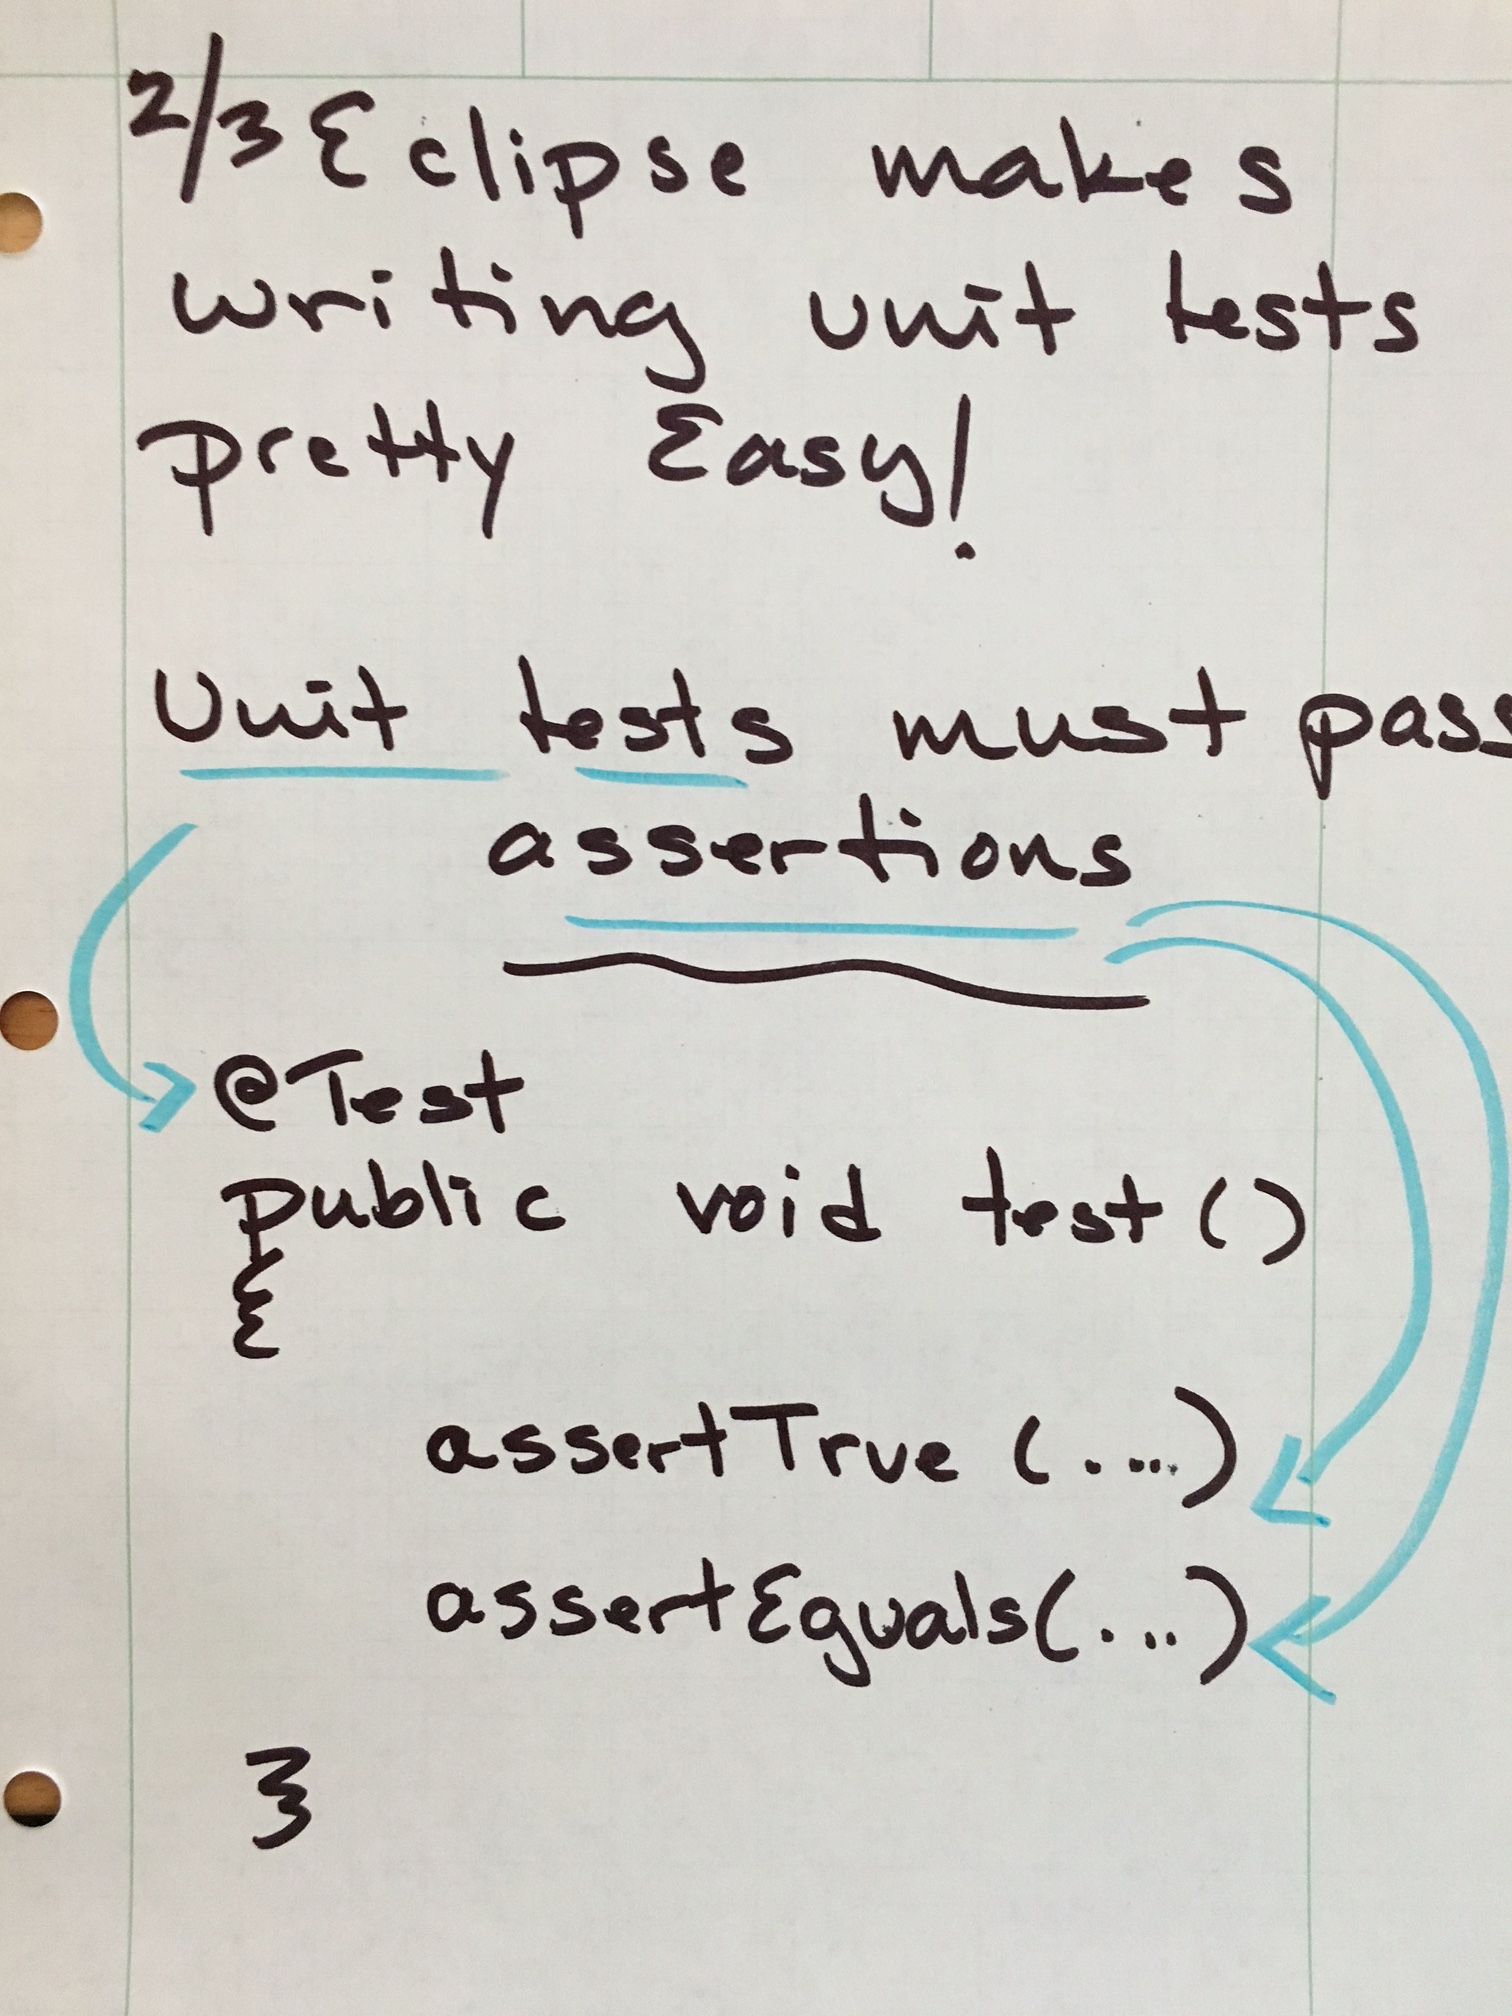 2/3 Eclipse makes
writing unit tests
pretty Easy!
Unit tests must pass
assertions
@Test
public void test()
{
assertTrue (....)
assertEquals(...)
}